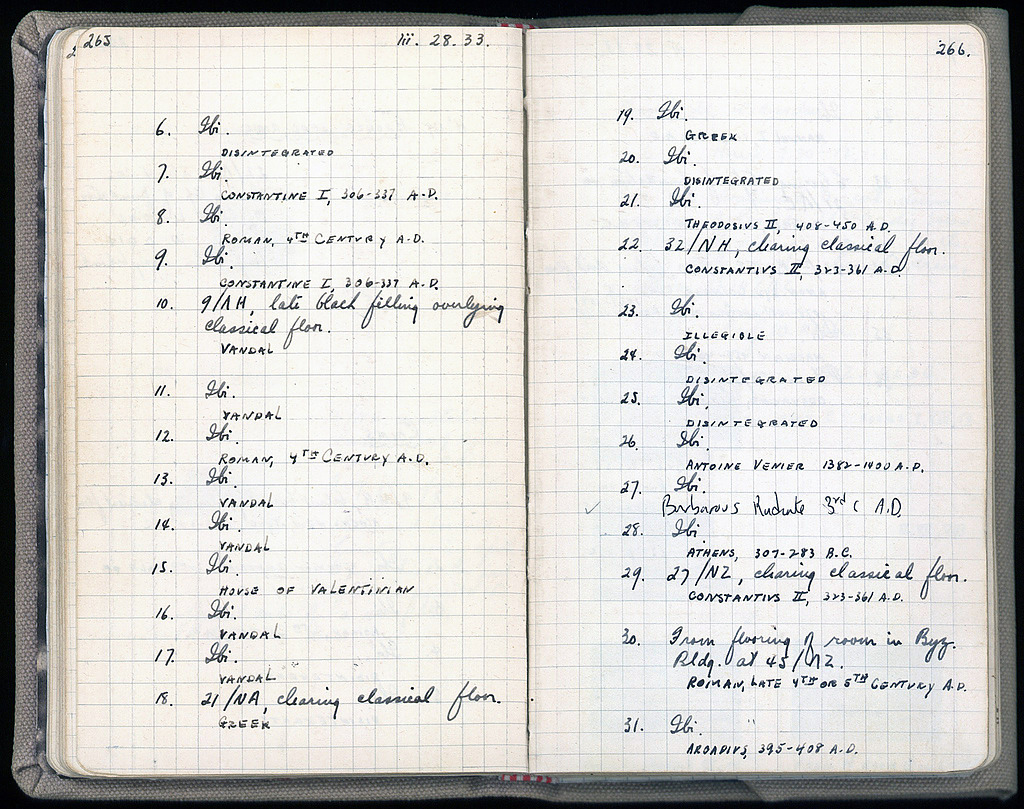 265
iii. 28. 33.
6. Ibi.
DISINTEGRATED
7. Ibi.
CONSTANTINE I, 306-337 A.D.
8. Ibi.
ROMAN, 4TH CENTURY A.D.
9. Ibi.
CONSTANTINE I, 306-337 A.D.
10. 9/ΛΗ, late black filling overlying
classical floor.
VANDAL
11. Ibi.
VANDAL
12. Ibi.
ROMAN, 4TH CENTURY A.D.
13. Ibi.
VANDAL
14. Ibi.
VANDAL
15. Ibi.
HOUSE OF VALENTINIAN
16. Ibi.
VANDAL
17. Ibi.
VANDAL
18. 21/ΝΑ, clearing classical floor.
GREEK
266.
19. Ibi.
GREEK
20. Ibi.
DISINTEGRATED
21. Ibi.
THEODOSIUS II, 408-450 A.D.
22. 32/ΝΗ, clearing classical floor.
CONSTANTIVS II, 323-361 A.D.
23. Ibi.
ILLEGIBLE
24. Ibi.
DISINTEGRATED
25. Ibi.
DISINTEGRATED
26. Ibi.
ANTOINE VENIER 1382-1400 A.D.
27. Ibi.
✓ Barbarous Radiate 3rd c A.D.
28. Ibi.
ATHENS, 307-283 B.C.
29. 27/ΝΖ, clearing classical floor.
CONSTANTIVS II, 323-361 A.D.
30. From flooring of room in Byz.
Bldg. at 45/ΝΖ.
ROMAN, LATE 4TH OR 5TH CENTURY A.D.
31. Ibi.
ARCADIVS, 395-408 A.D.